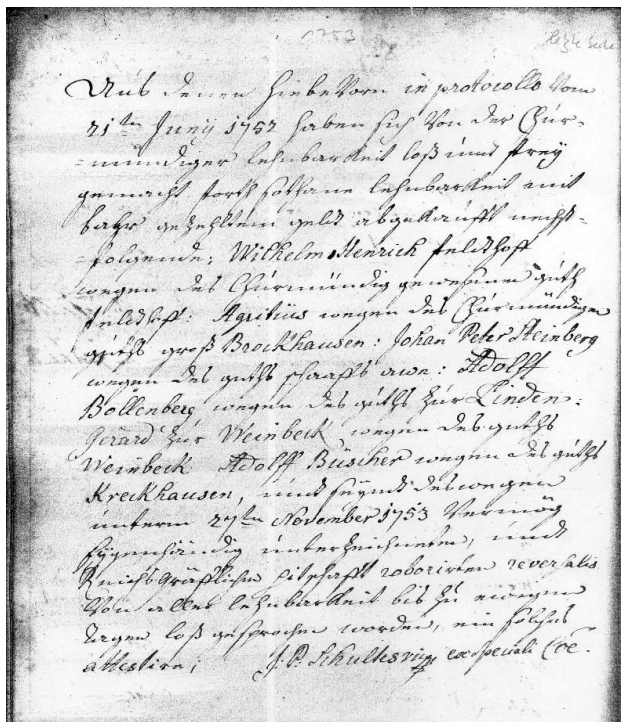 1753
letzte Seite
Aus denen hiebevorn in protocollo vom
21ten Junij 1752 haben sich von der Chur-
=mündiger lehnbarkeit loß undt frey
gemacht forth sothane lehnbarkeit mit
bahr gezehltem geldt abgekaufft nechst-
=folgende; Wilhelm Henrich feldthoff
wegen des Churmündig gewesenen guth
feldthoff: Agritius wegen des Churmündigen
guths groß Brockhausen: Johan Peter Steinberg
wegen des guths schaaffs awe: Adolff
Bollenberg wegen des guths zur Linden:
Gerard zur Weinbeck wegen des guths
Weinbeck Adolff Büscher wegen des guths
Kreckhausen, undt seyndt deswegen
unterm 27ten November 1753 Vermög
Eygenhändig unterzeichneten, undt
Reichsgräfflichen pitschafft roborirten reversalis
Von aller lehnbarkeit bis zu ewigen
tagen loß gesprochen worden, ein solches
attestire; J. P. Schultes ex speciali Coe.